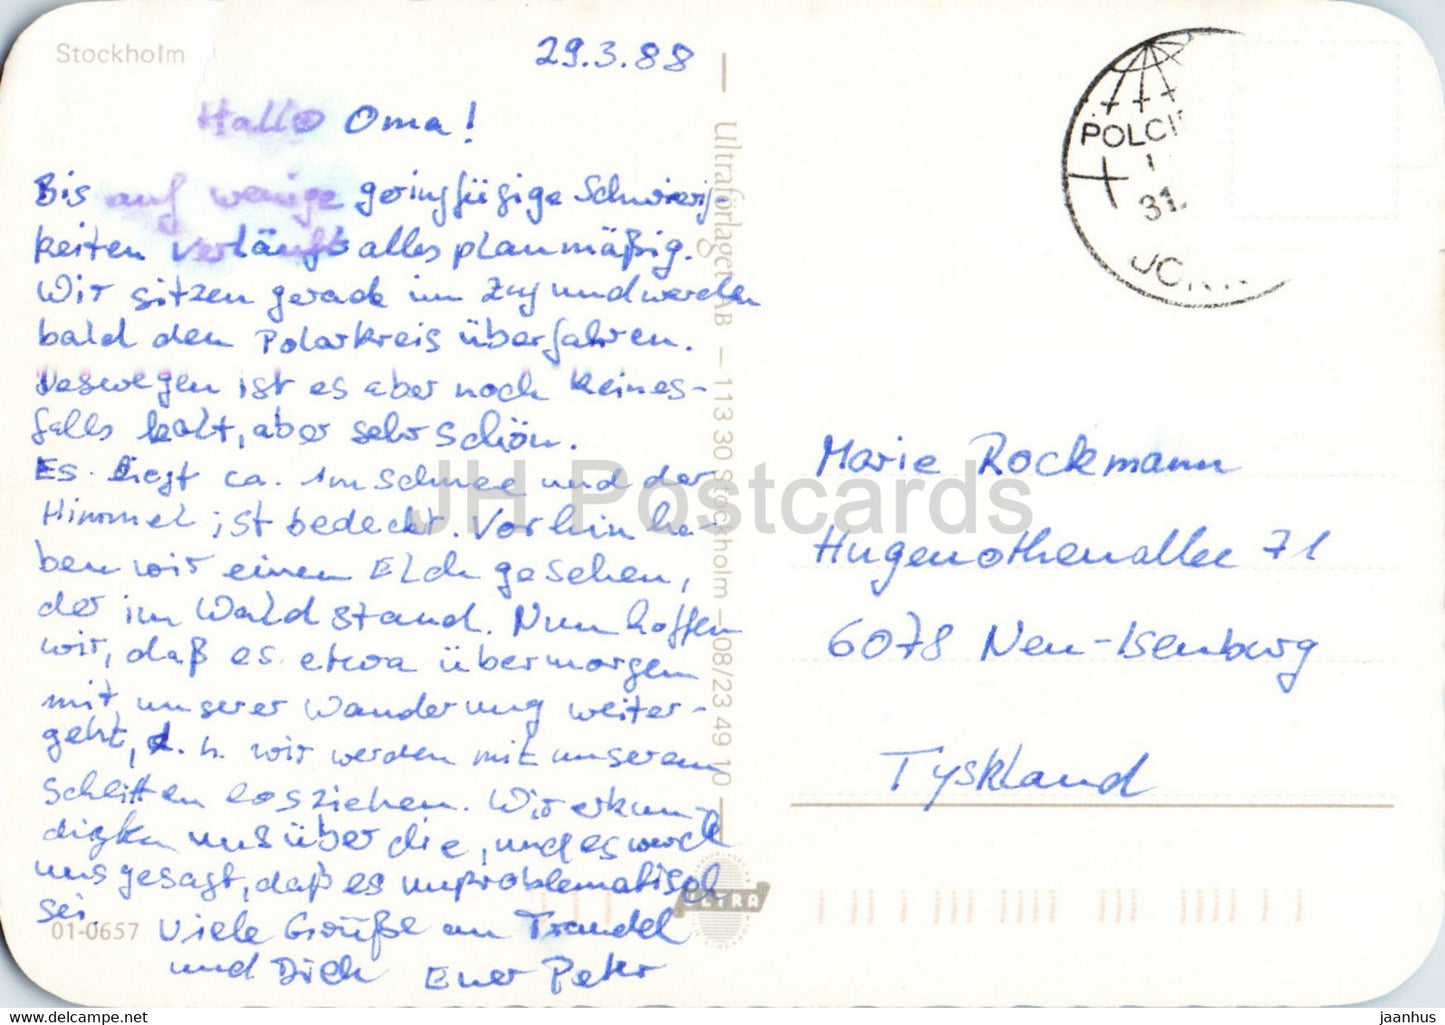 Stockholm
29.3.88
Hallo Oma!
Bis auf wenige geringfügige Schwierig-
keiten verläuft alles planmäßig.
Wir sitzen gerade im Zug und werden
bald den Polarkreis überfahren.
Deswegen ist es aber noch keines-
falls kalt, aber sehr schön.
Es liegt ca. 1m Schnee und der
Himmel ist bedeckt. Vorhin ha-
ben wir einen Elch gesehen,
der im Wald stand. Nun hoffen
wir, daß es etwa übermorgen
mit unserer Wanderung weiter-
geht, d.h. wir werden mit unserem
Schlitten losziehen. Wir erkun-
digten uns über die, und es wurde
uns gesagt, daß es unproblematisch
sei. Viele Grüße an Traudel
und Dich Euer Peter
01-0657
Ultraförlaget AB — 113 30 Stockholm — 08/23 49 10
ULTRA
POLCIR
31.
JOKK
Marie Rockmann
Hugenottenallee 71
6078 Neu-Isenburg
Tyskland
JH Postcards
www.delcampe.net
jaanhus